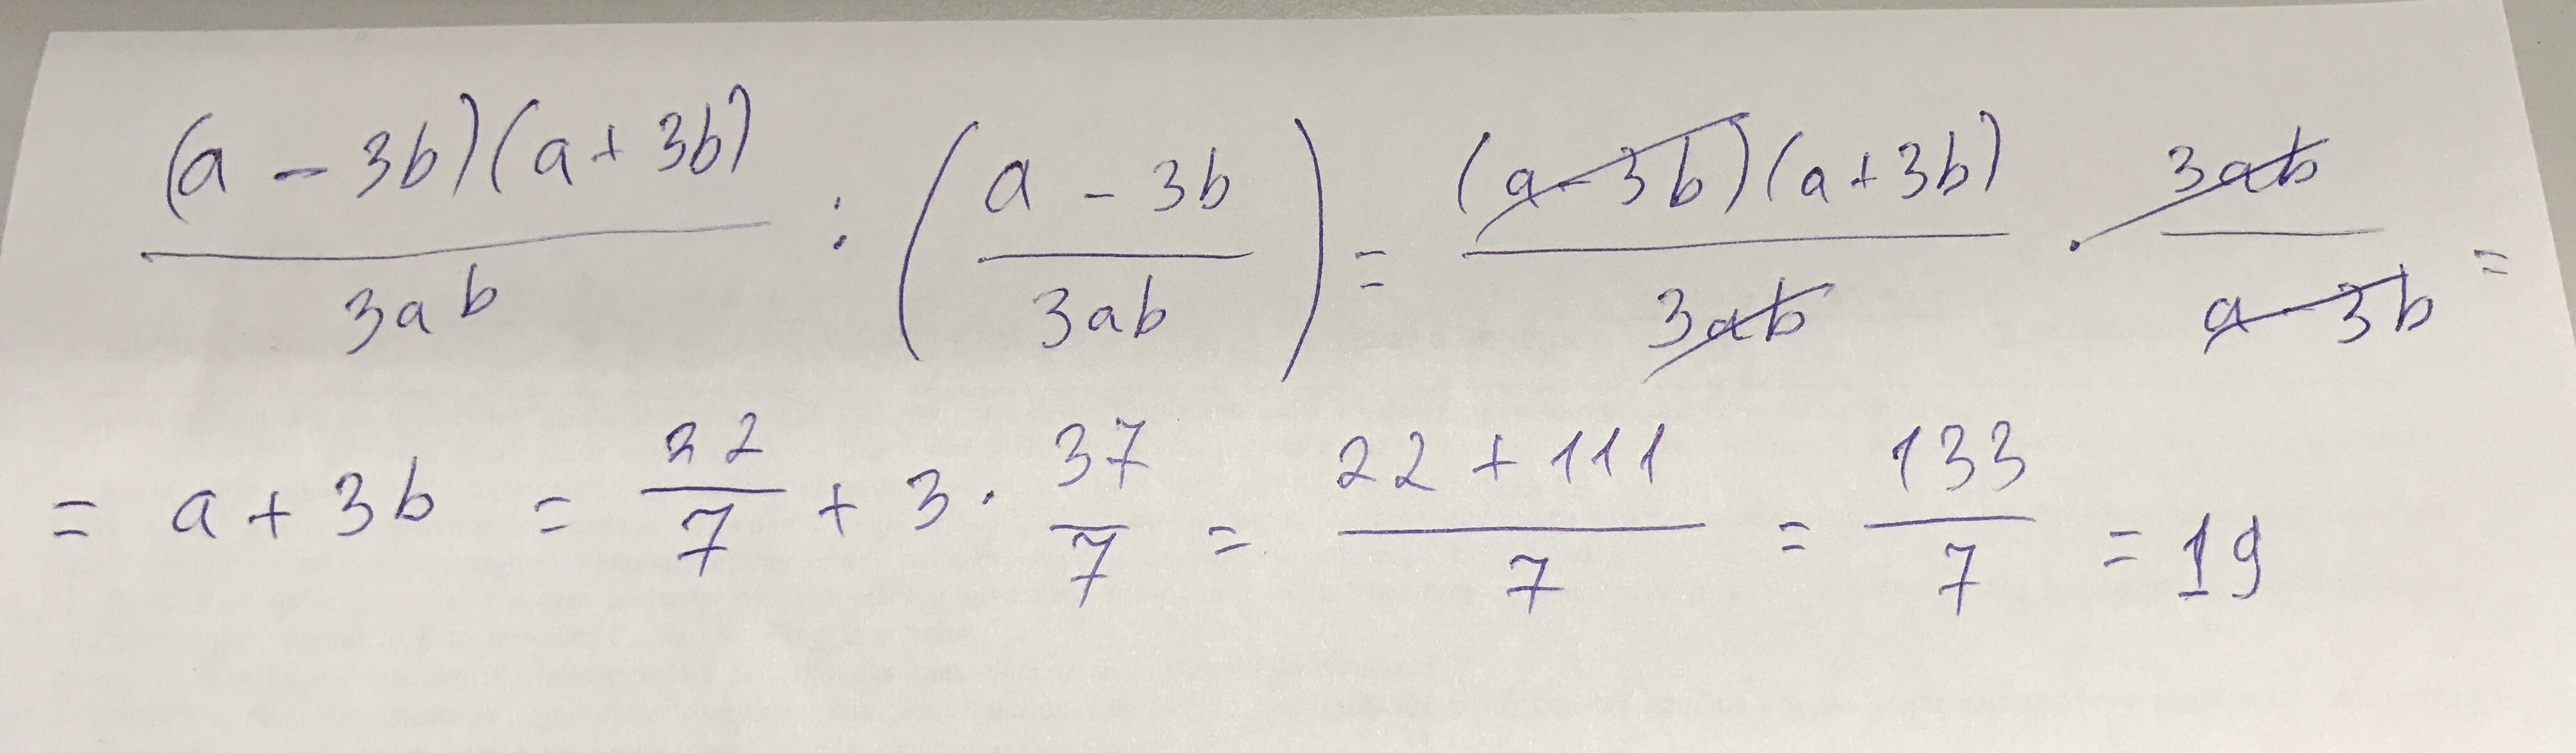 \frac{(a - 3b)(a + 3b)}{3ab} : \left(\frac{a - 3b}{3ab}\right) = \frac{(a - 3b)(a + 3b)}{3ab} \cdot \frac{3ab}{a - 3b} =
= a + 3b = \frac{22}{7} + 3 \cdot \frac{37}{7} = \frac{22 + 111}{7} = \frac{133}{7} = 19